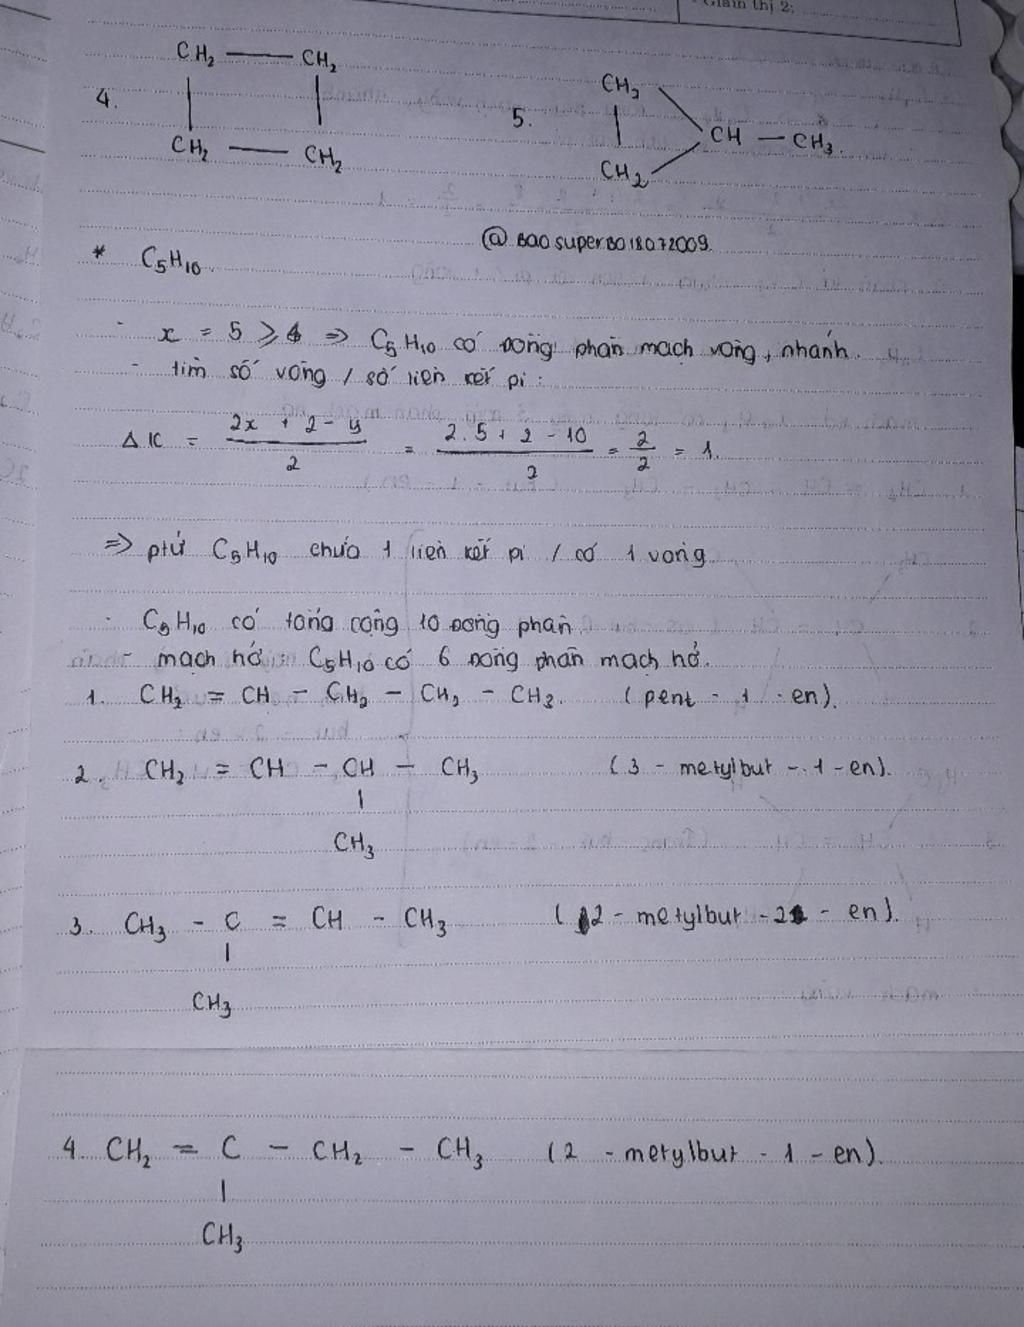 Giám thị 2:
CH2 — CH2
4.
CH2 — CH2
CH2
5.
CH — CH3.
CH2
@ BaoSuperBo18072009.
* C5H10.
- x = 5 ⩾ 4 => C5H10 có đồng phân mạch vòng, nhánh.
- tìm số vòng / số liên kết pi:
Δ1C = (2x + 2 - y)/2 = (2.5 + 2 - 10)/2 = 2/2 = 1.
=> ptử C5H10 chứa 1 liên kết pi / có 1 vòng.
- C5H10 có tổng cộng 10 đồng phân.
- mạch hở: C5H10 có 6 đồng phân mạch hở.
1. CH2 = CH - CH2 - CH2 - CH3. (pent - 1 - en).
2. CH2 = CH - CH - CH3 (3 - metylbut - 1 - en).
CH3
3. CH3 - C = CH - CH3 (2 - metylbut - 2 - en).
CH3
4. CH2 = C - CH2 - CH3 (2 - metylbut - 1 - en).
CH3